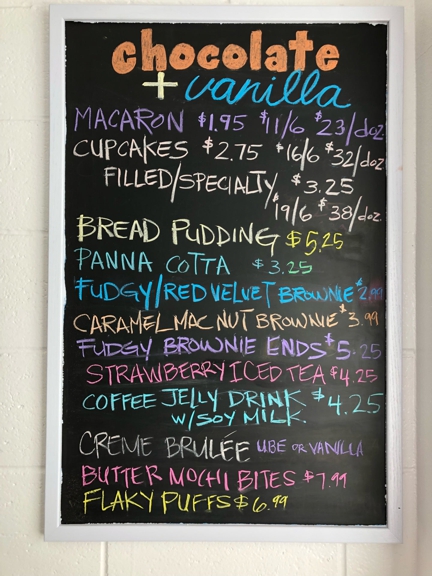 chocolate
+ vanilla
MACARON $1.95 $11/6 $23/doz
CUPCAKES $2.75 $16/6 $32/doz
FILLED/SPECIALTY $3.25
$19/6 $38/doz.
BREAD PUDDING $5.25
PANNA COTTA $3.25
FUDGY/RED VELVET BROWNIE $2.99
CARAMEL MAC NUT BROWNIE $3.99
FUDGY BROWNIE ENDS $5.25
STRAWBERRY ICED TEA $4.25
COFFEE JELLY DRINK $4.25
W/SOY MILK.
CREME BRULÉE UBE OR VANILLA
BUTTER MOCHI BITES $7.99
FLAKY PUFFS $6.99